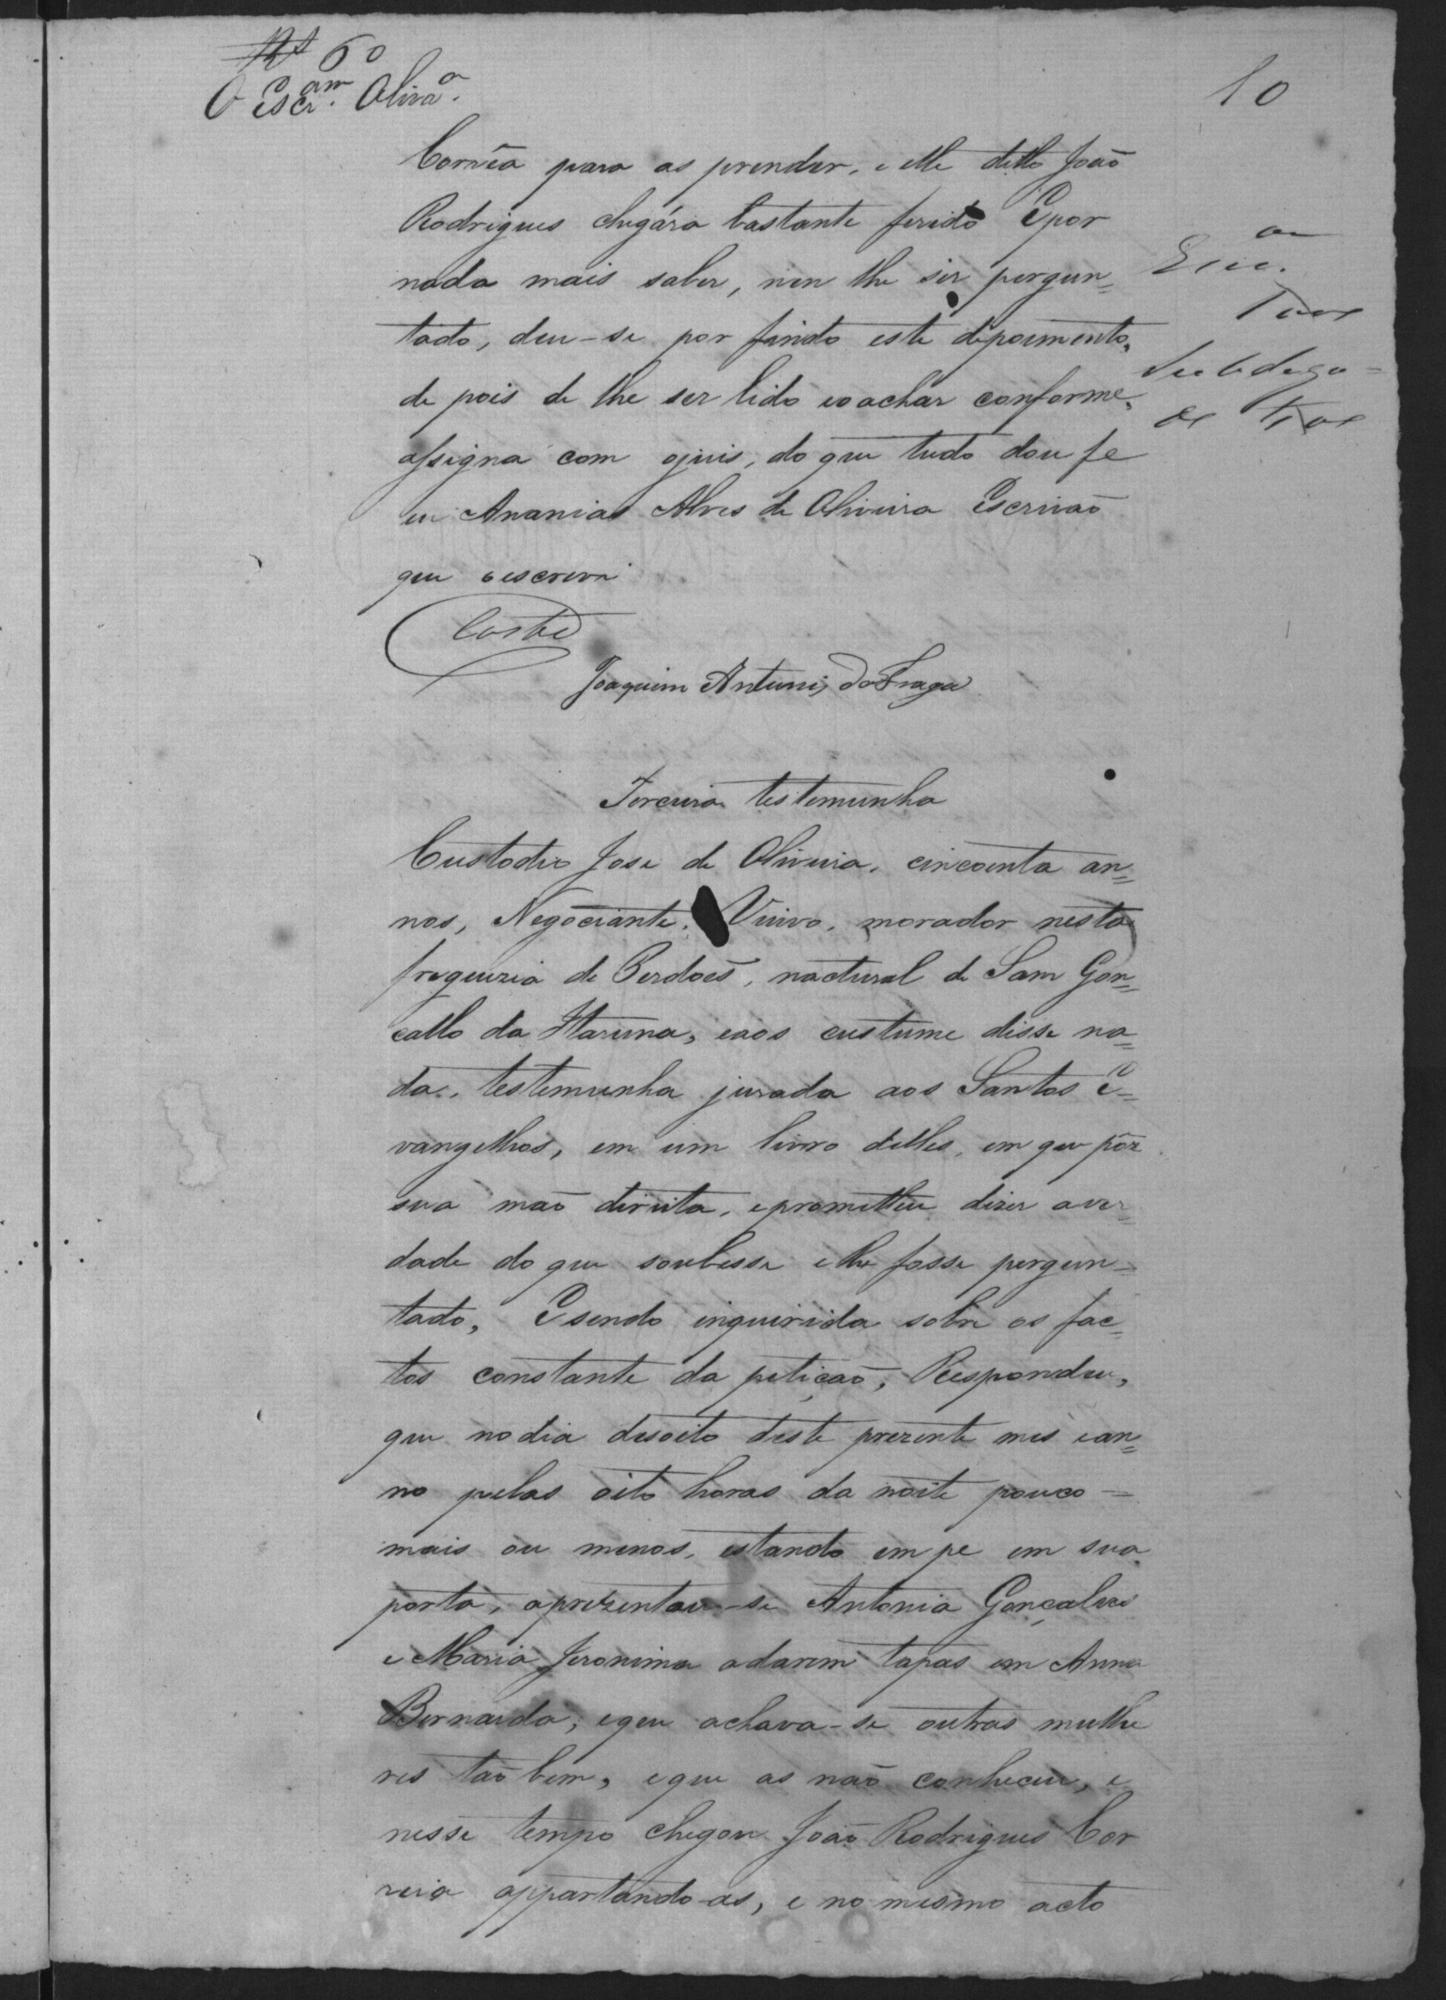 60
O Escr.am Olivr.a
10
Corrêa para as prender, e elle ditto João
Rodrigues chegára bastante ferido Epor
nada mais saber, nen lhe ser pergun=
tado, deu-se por findo este depoimento,
de pois de lhe ser lido eoachar conforme,
assigna com ojuis, do que tudo dou fe
eu Ananias Alves de Oliveira Escrivão
que oescrevi
Costa
Joaquim Antunes da Fraga
Terceira testemunha
Custodio Jose de Oliveira, cincoenta an=
nos, Negociante, Viuvo, morador nesta
freguezia de Perdoẽs, nactural de Sam Gon=
callo da Ituruna, eaos custume disse na=
da, testemunha jurada aos Santos E=
vangelhos, em um livro delles, em que pôz
sua mão direita, eprometteu dizer aver=
dade do que soubesse elhe fosse pergun=
tado, Esendo inquirida sobre os fac=
tos constante da petição, Respondeu,
que nodia desoito deste prezente mes ean=
no pelas oito horas da noite pouco =
mais ou menos, estando empe em sua
porta, aprezentou-se Antonia Gonçalves
e Maria Jeronima adarem tapas em Anna
Bernarda, eque achava-se outras mulhe
res tão bem, eque as não conheceu, e
nesse tempo chegou João Rodrigues Cor
reia appartando-as, e no mesmo acto